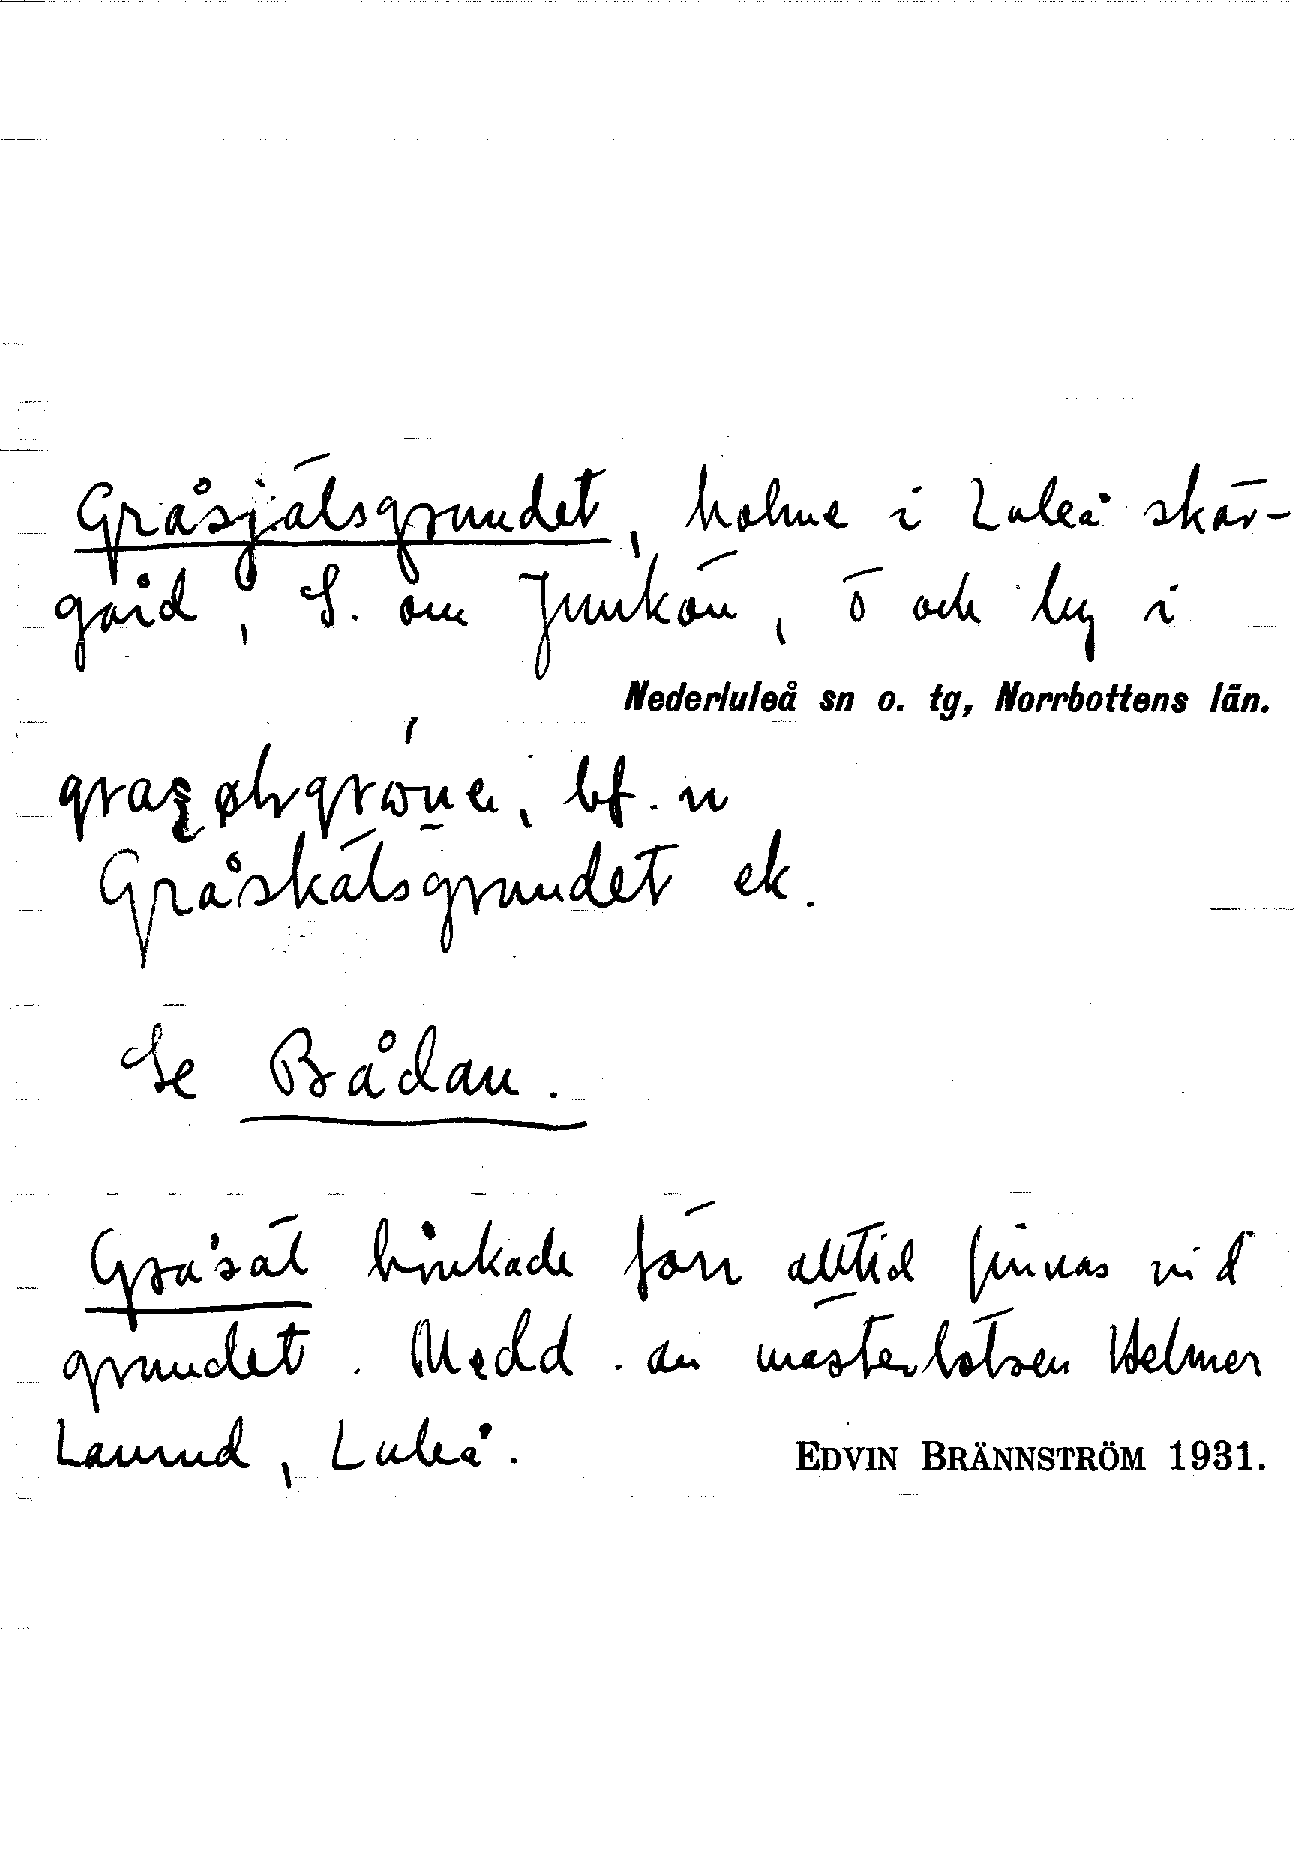 Gråsjälsgrundet, holme i Luleå skär-
gård, S. om Junkön, ö och by i
Nederluleå sn o. tg, Norrbottens län.
bf. n
Gråskälsgrundet ek.
Se Bådan.
Gråsäl brukade förr alltid finnas vid
grundet. Medd. av mästerlotsen Helmer
Laurud, Luleå.
EDVIN BRÄNNSTRÖM 1931.